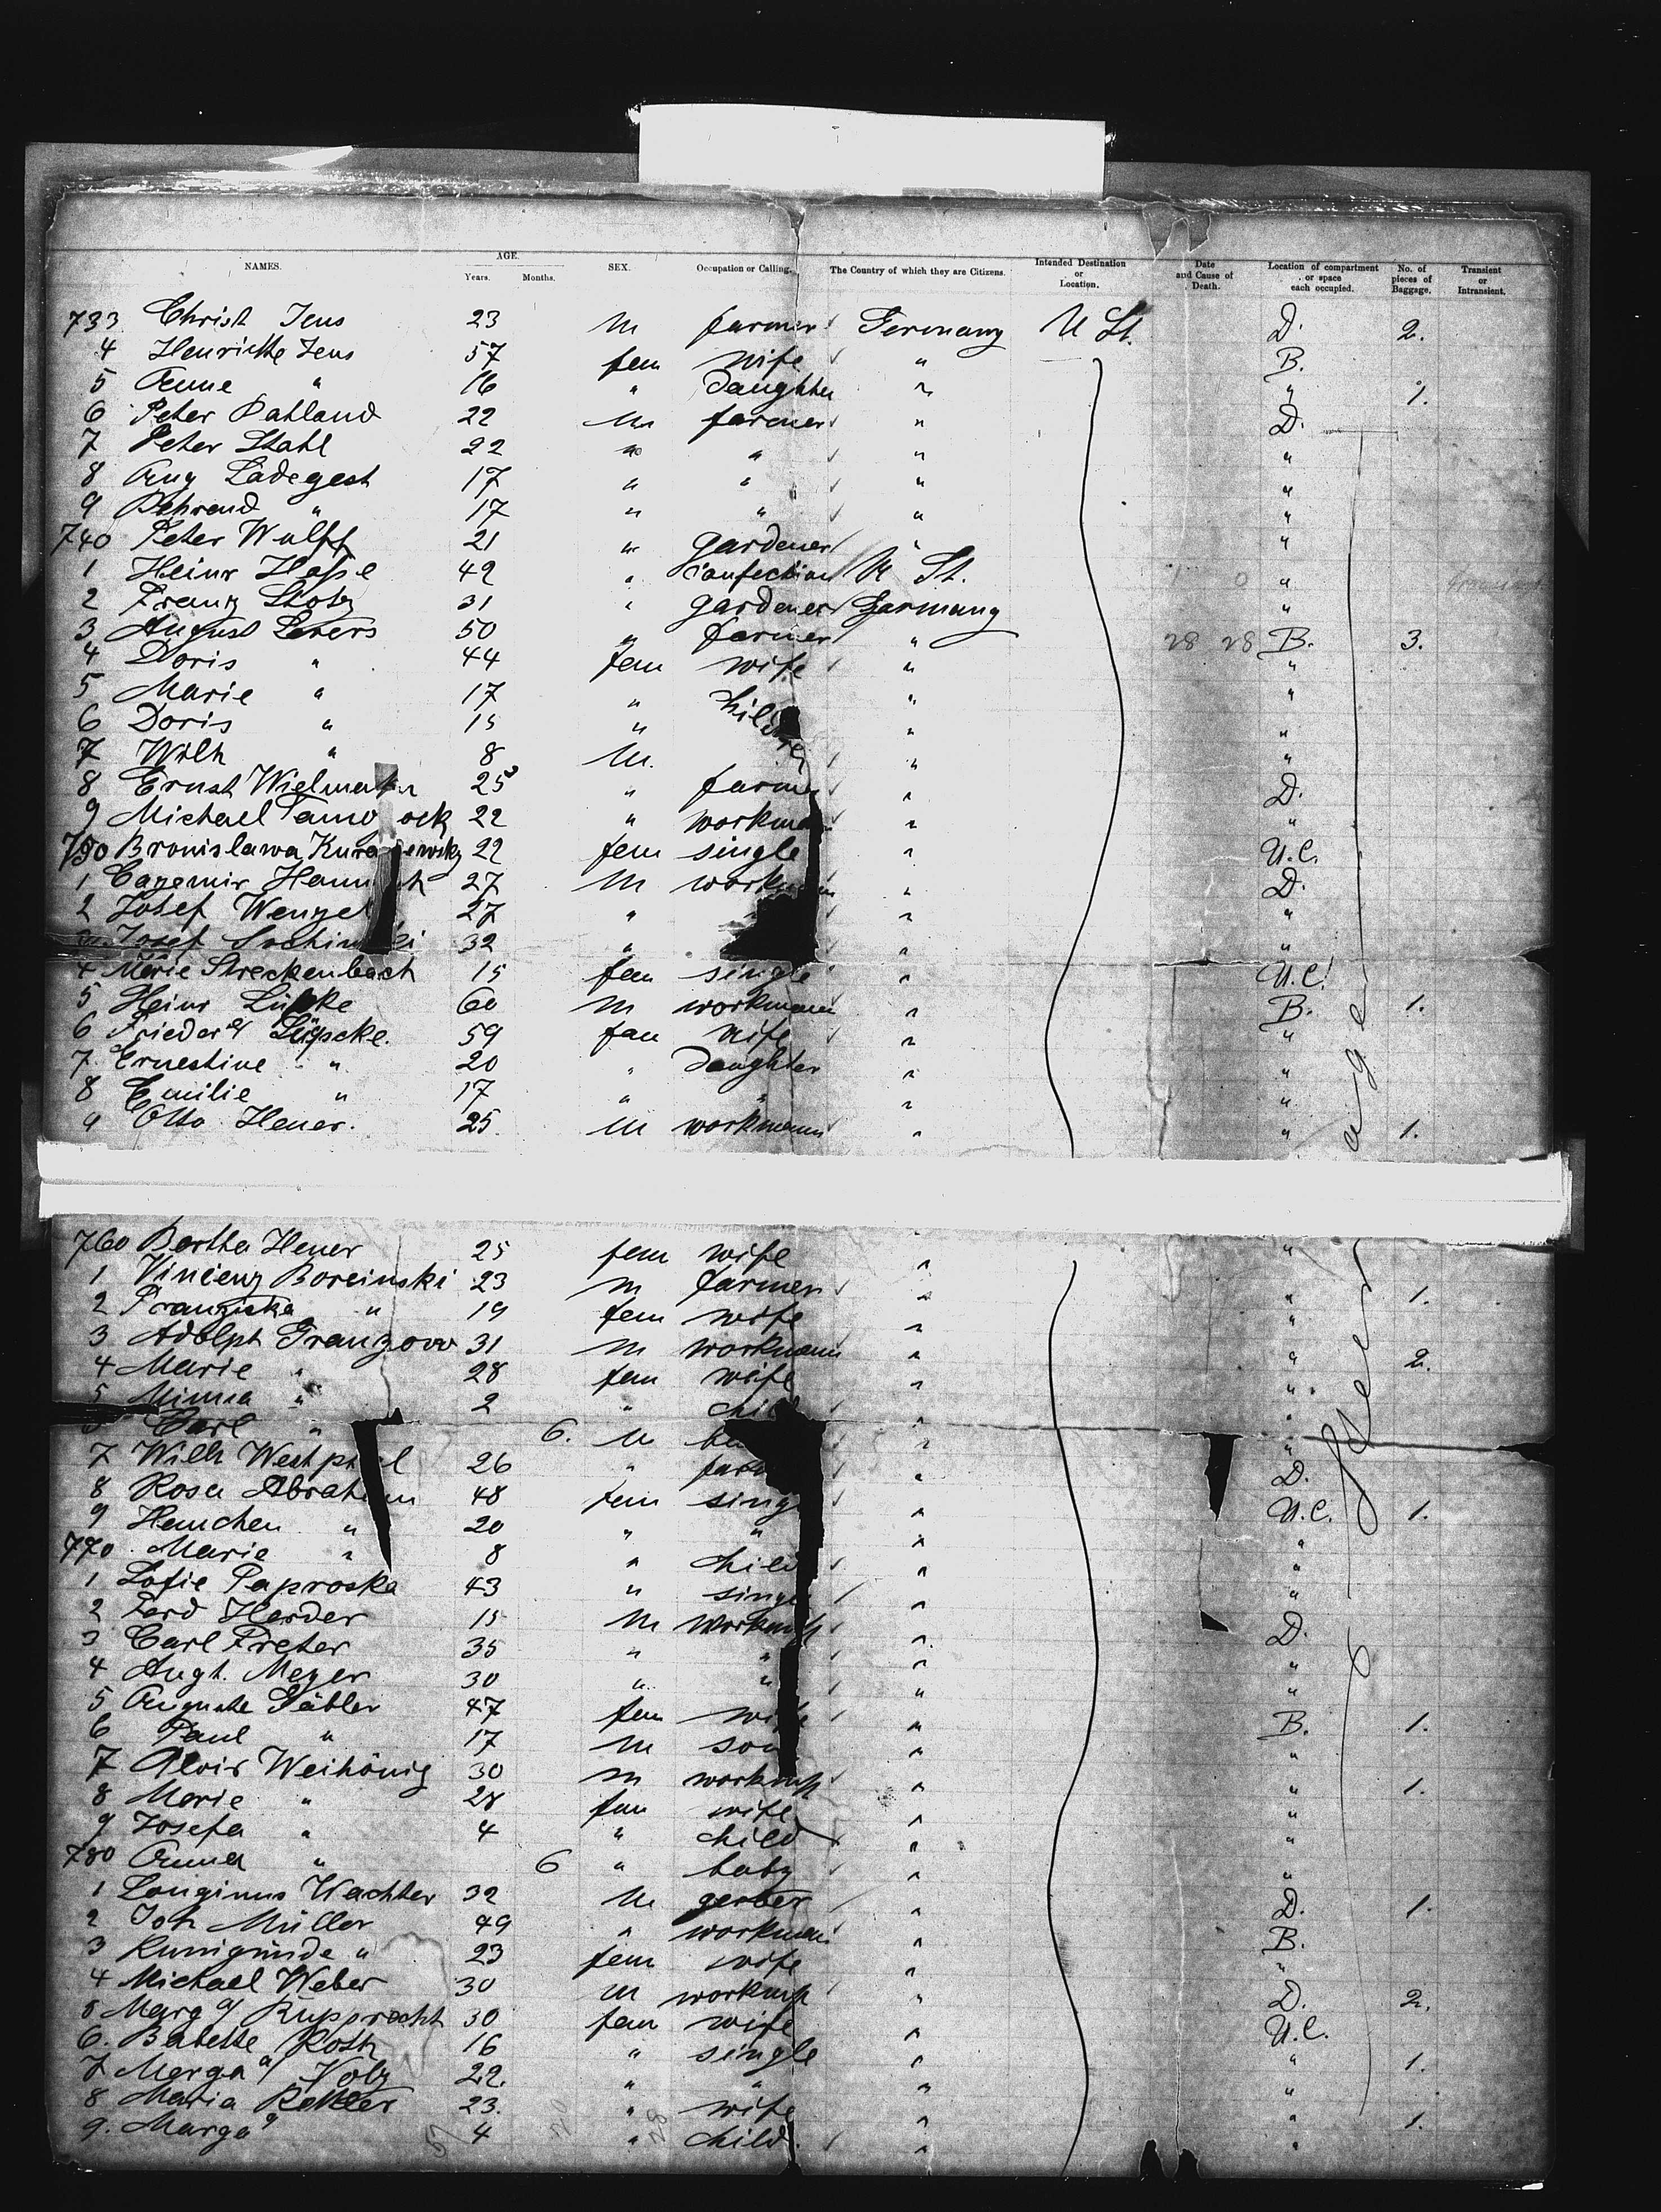 NAMES. AGE. Years. Months. SEX. Occupation or Calling. The Country of which they are Citizens. Intended Destination or Location. Date and Cause of Death. Location of compartment or space each occupied. No. of pieces of Baggage. Transient or Intransient.
733 Christ Jens 23 m farmer Germany U St. D. 2.
4 Henriette Jens 57 fem wife " B.
5 Anne " 16 " daughter " " 1.
6 Peter Dahland 22 m farmer " D.
7 Peter Stahl 22 " " " "
8 Aug Ladegest 17 " " " "
9 Behrend " 17 " " " "
740 Peter Wulff 21 " gardener " "
1 Heinr Hasse 49 " confection U St. "
2 Franz Stolz 31 " gardener Germany "
3 August Levers 50 " farmer " 28 28 B. 3.
4 Doris " 44 fem wife " "
5 Marie " 17 " children " "
6 Doris " 15 " " "
7 Wilh " 8 m. " "
8 Ernst Wielmann 25 " farmer " D.
9 Michael 22 " workman " "
750 Bronislawa 22 fem single " U.C.
1 Cazemir 27 m workman " D.
2 Josef Wenzel 27 " " "
Josef 32 " " "
4 Marie Streckenbach 15 fem single " U.C.
5 Heinr Lüpke 60 m workmann " B. 1.
6 Frieder Lüpcke. 59 fem wife " "
7. Ernestine " 20 " daughter " "
8 Emilie " 17 " " " "
9 Otto Hener. 25. m workmann " " 1.
760 Bertha Hener 25 fem wife " "
1 Vincenz Boreinski 23 m farmer " " 1.
2 Franziska " 19 fem wife " "
3 Adolph Granzow 31 m workmann " " 2.
4 Marie " 28 fem wife " "
5 Minna " 2 " child " "
Carl " 6. m " "
7 Wilh Westphal 26 " " D.
8 Rosa Abraham 48 fem single " U.C. 1.
9 Hennchen " 20 " " " "
770 Marie " 8 " child " "
1 Sofie Paproska 43 " single " "
2 Ferd Herder 15 m workmn " D.
3 Carl Preter 35 " " " "
4 Augt. Meyer 30 " " " "
5 Auguste Gäbler 47 fem wife " B. 1.
6 Paul " 17 m son " "
7 Alois Weihönig 30 m workmn " " 1.
8 Marie " 28 fem wife " "
9 Josefa " 4 " child " "
780 Anna " 6 " baby " "
1 Longinus Wachter 32 m gerber " D. 1.
2 Joh Müller 49 " workman " B.
3 Kunigunde " 23 fem wife " "
4 Michael Weber 30 m workmn " D. 2.
5 Marg Rupprecht 30 fem wife " U.C.
6. Babette Roth 16 " single " " 1.
7 Marga Volz 22. " " " "
8 Maria 23. " wife " " 1.
9. Marga 4 " child. " "